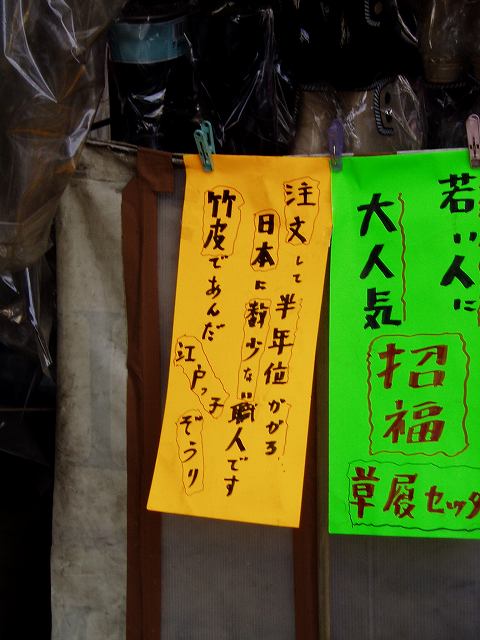 注文して半年位かかる
日本に数少ない職人です
竹皮であんだ
江戸っ子
ぞうり
若い人に
大人気
招福
草履セッタ